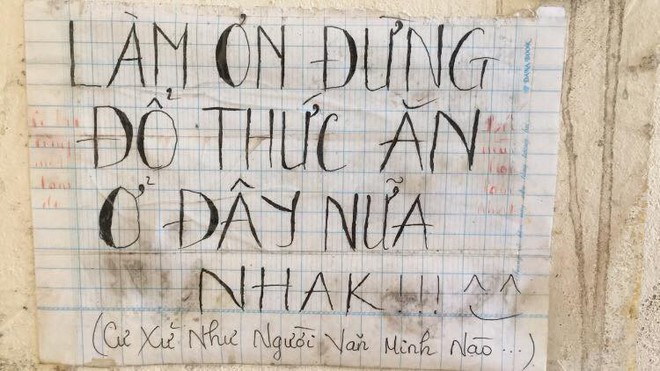 LÀM ƠN ĐỪNG
ĐỔ THỨC ĂN
Ở ĐÂY NỮA
NHAK!!! ^_^
(Cư Xử Như Người Văn Minh Nào...)